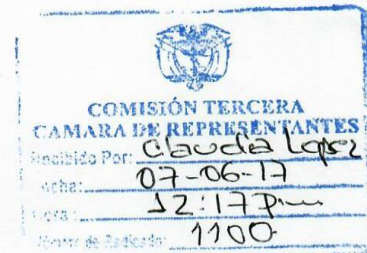 COMISIÓN TERCERA
CAMARA DE REPRESENTANTES
Recibido Por: Claudia Lopez
Fecha: 07-06-17
Hora: 12:17 pm
Número de Radicado: 1100